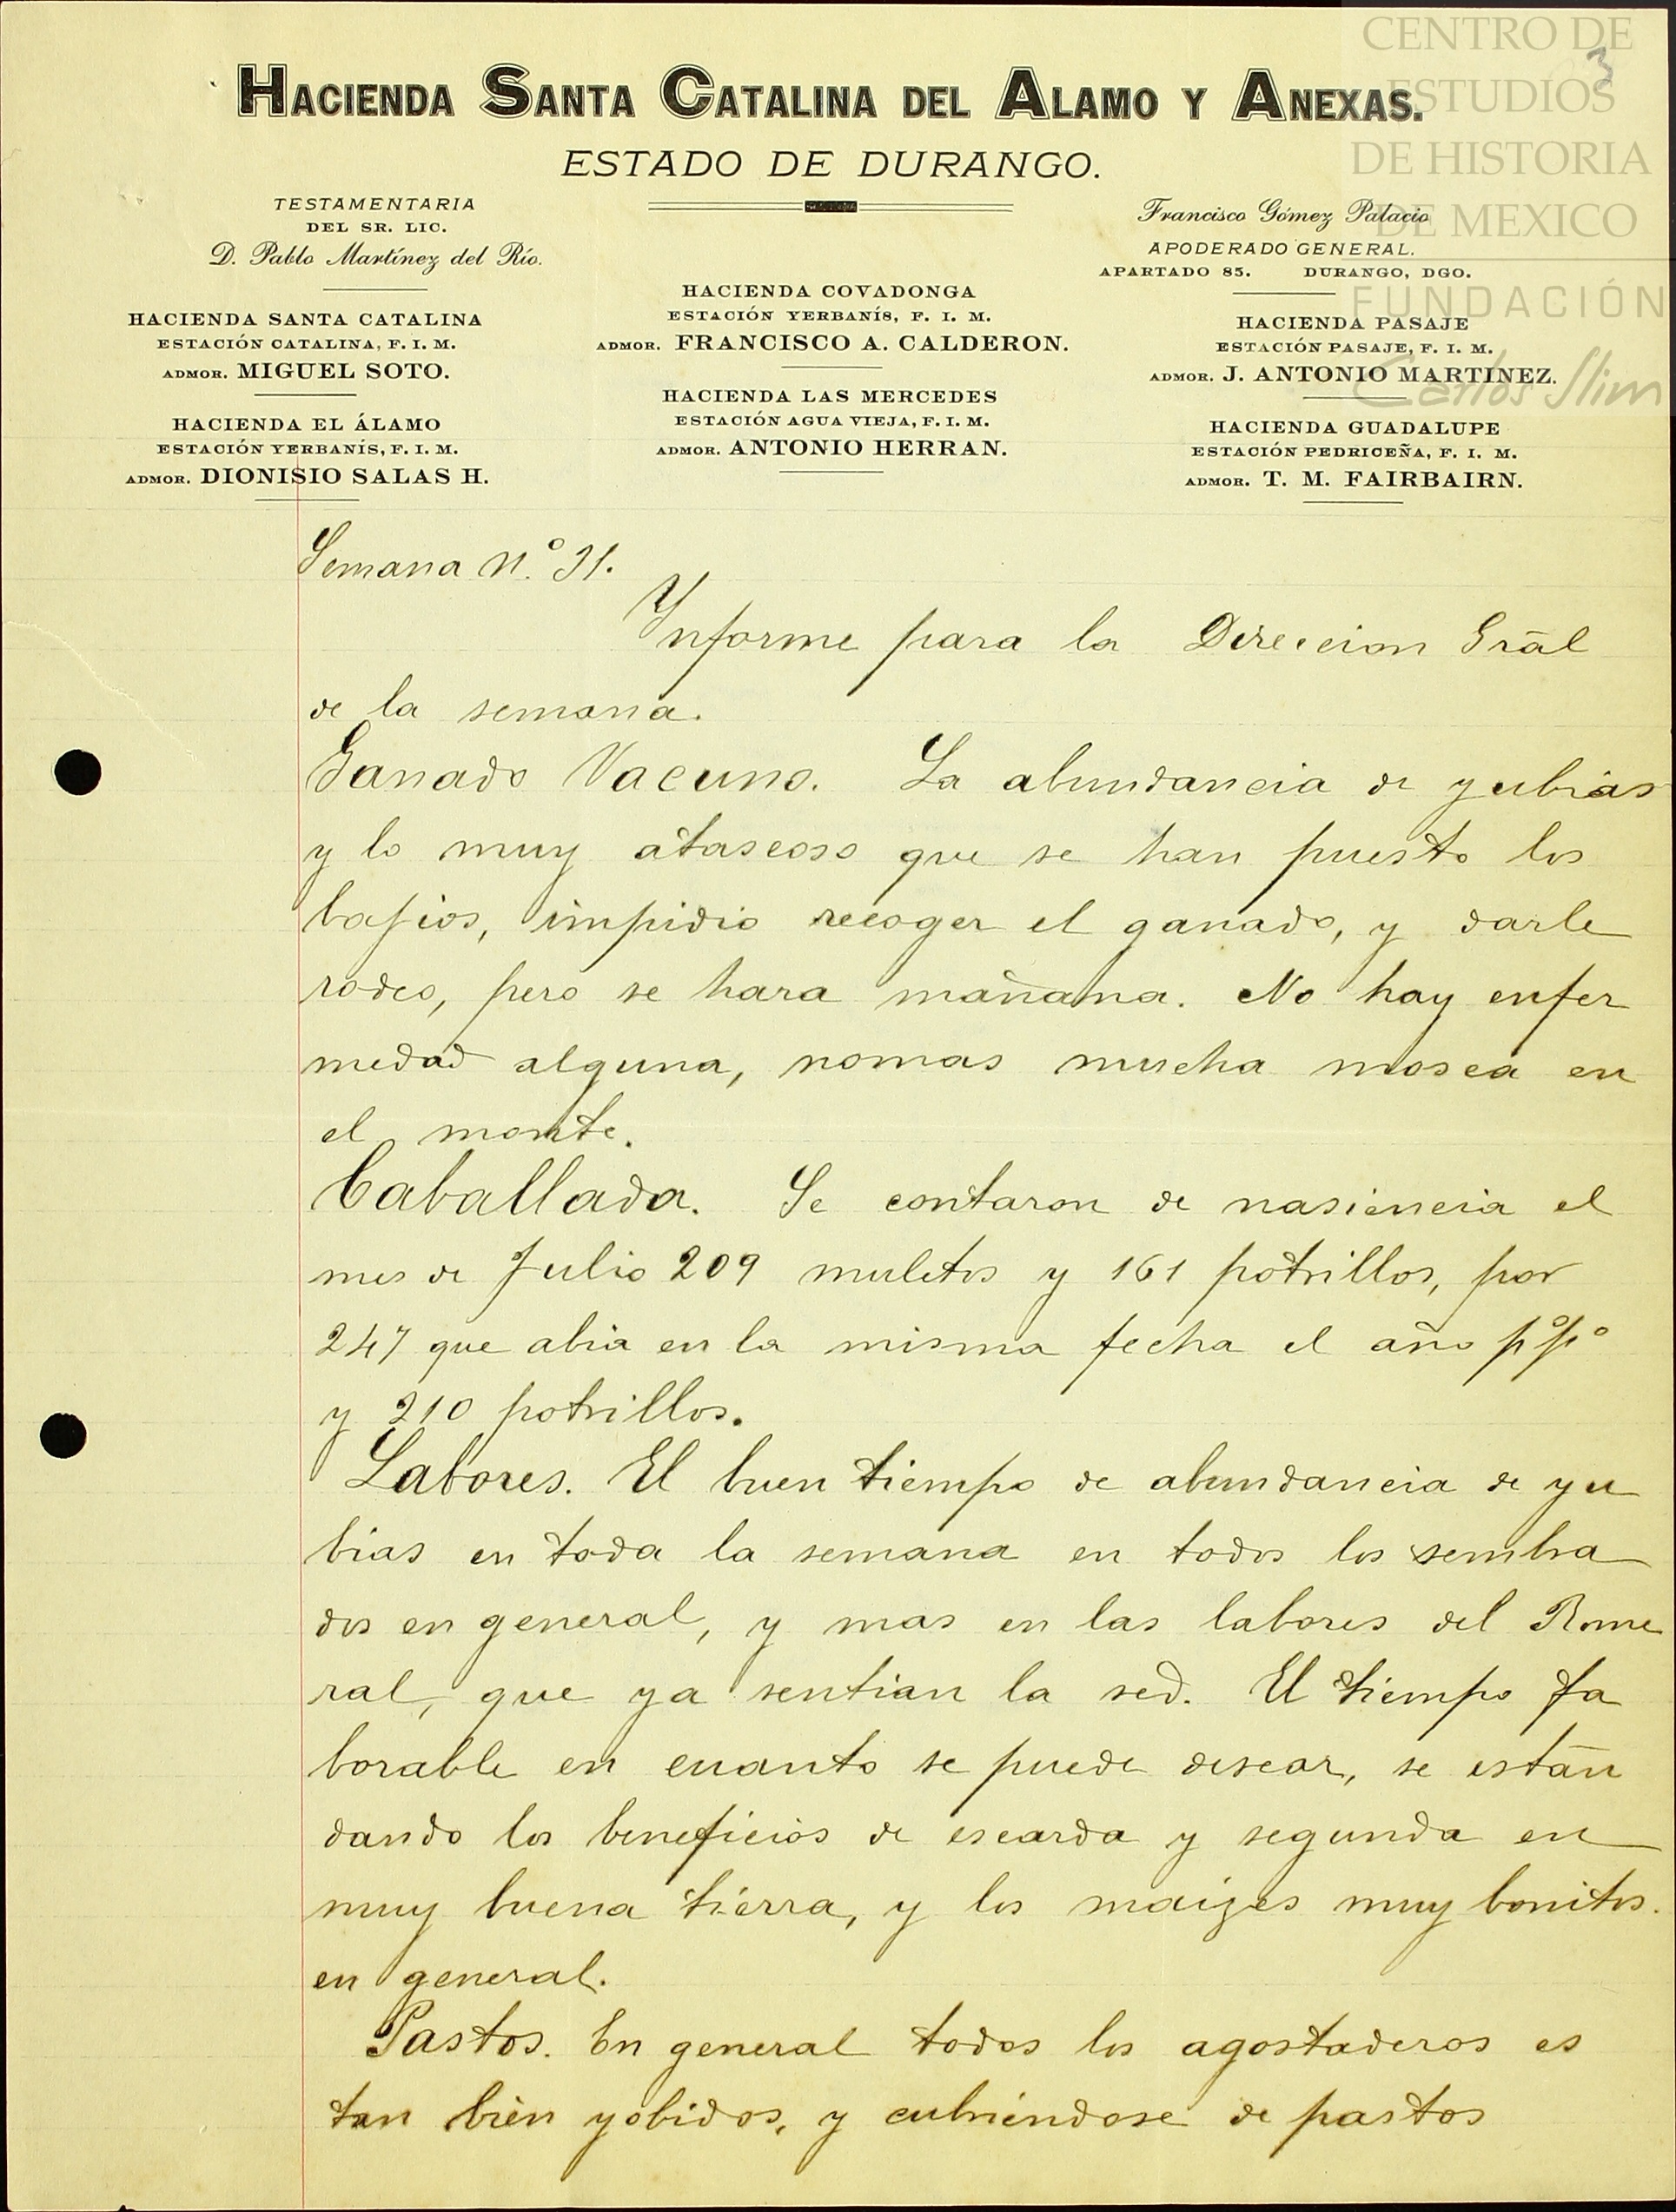 CENTRO DE
ESTUDIOS
DE HISTORIA
DE MEXICO
FUNDACIÓN
Carlos Slim
3
HACIENDA SANTA CATALINA DEL ALAMO Y ANEXAS.
ESTADO DE DURANGO.
TESTAMENTARIA
DEL SR. LIC.
D. Pablo Martínez del Río.
HACIENDA SANTA CATALINA
ESTACIÓN CATALINA, F. I. M.
ADMOR. MIGUEL SOTO.
HACIENDA EL ÁLAMO
ESTACIÓN YERBANÍS, F. I. M.
ADMOR. DIONISIO SALAS H.
HACIENDA COVADONGA
ESTACIÓN YERBANÍS, F. I. M.
ADMOR. FRANCISCO A. CALDERON.
HACIENDA LAS MERCEDES
ESTACIÓN AGUA VIEJA, F. I. M.
ADMOR. ANTONIO HERRAN.
Francisco Gómez Palacio
APODERADO GENERAL.
APARTADO 85. DURANGO, DGO.
HACIENDA PASAJE
ESTACIÓN PASAJE, F. I. M.
ADMOR. J. ANTONIO MARTINEZ.
HACIENDA GUADALUPE
ESTACIÓN PEDRICEÑA, F. I. M.
ADMOR. T. M. FAIRBAIRN.
Semana N.º 31.
Ynforme para la Direccion Gràl
de la semana.
Ganado Vacuno. La abundancia de yubias
y lo muy atascoso que se han puesto los
bajios, impidio recoger el ganado, y darle
rodeo, pero se hara mañana. No hay enfer
medad alguna, nomas mucha mosca en
el monte.
Caballada. Se contaron de nasiencia el
mes de Julio 209 muletos y 161 potrillos, por
247 que abia en la misma fecha el año pºpº
y 210 potrillos.
Labores. El buen tiempo de abundancia de yu
bias en toda la semana en todos los sembra
dos en general, y mas en las labores del Rome
ral, que ya sentian la sed. El tiempo fa
borable en cuanto se puede desear, se están
dando los beneficios de escarda y segunda en
muy buena tierra, y los maizes muy bonitos.
en general.
Pastos. En general todos los agostaderos es
tan bien yobidos, y cubriendose de pastos